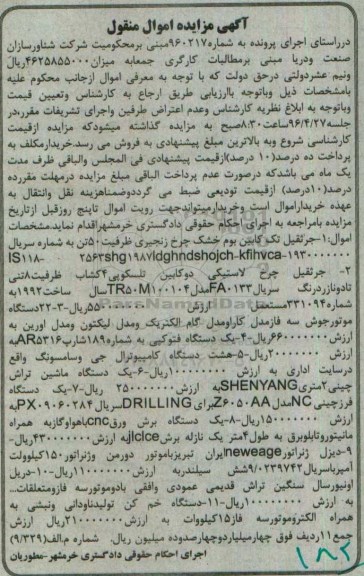 آگهی مزایده اموال منقول
درراستای اجرای پرونده به شماره۹۶۰۲۱۷مبنی برمحکومیت شرکت شناورسازان
صنعت ودریا مبنی برمطالبات کارگری جمعابه میزان۴۶۲۵۸۵۵۰۰۰ریال
ونیم عشردولتی درحق دولت که با توجه به معرفی اموال ازجانب محکوم علیه
بامشخصات ذیل وباتوجه باارزیابی طریق ارجاع به کارشناس وتعیین قیمت
وباتوجه به ابلاغ نظریه کارشناس وعدم اعتراض طرفین واجرای تشریفات مقرردر
جلسه۹۶/۴/۲۷ساعت۸:۳۰صبح به مزایده گذاشته میشودکه مزایده ازقیمت
کارشناسی شروع وبه بالاترین مبلغ پیشنهادی به فروش می رسد.خریدارمکلف به
پرداخت ده درصد(۱۰ درصد)ازقیمت پیشنهادی فی المجلس والباقی ظرف مدت
یک ماه می باشدکه درصورت عدم پرداخت الباقی مبلغ مزایده درمهلت مقررده
درصد(۱۰درصد) ازقیمت تودیعی ضبط می گرددوضمناهزینه نقل وانتقال به
عهده خریداراموال است وخریدارمیتواندجهت رویت اموال تاپنج روزقبل ازتاریخ
مزایده بامراجعه به اجرای احکام حقوقی دادگستری خرمشهراقدام نماید.مشخصات
اموال:۱-جرثقیل تک کابین بوم خشک چرخ زنجیری ظرفیت۵۰تن به شماره سریال
IS۱۱۸- ۲۵۶۳shg۱۹۸۷ldghndshojch-kfihvca-۱۹۳۰۰۰۰۰۰۰
۲- جرثقیل چرخ لاستیکی دوکابین تلسکوپی۴کشاب ظرفیت۸تنی
تادونازردرنگ سریالFA۰۱۳۳مدلTR۵۰M۱۰۰۱۰۴سال ساخت۱۹۹۲به
شماره۳۳۱۰۹۴مستعمل ارزش ۵۵۰۰۰۰۰۰۰ریال-۳-۲۲دستگاه
موتورجوش سه فازمدل کاراومدل گام الکتریک ومدل لیکتون ومدل اورین به
ارزش۶۶۰۰۰۰۰۰۰ریال-۴-یک دستگاه فتوکپی به شماره۱۸۹شارپAR۵۳۱۶به
ارزش ۲۰۰۰۰۰۰۰ریال-۵-هشت دستگاه کامپیوترال جی وسامسونگ واقع
درسایت اداری به ارزش ۱۰۰۰۰۰۰۰ریال-۶-یک دستگاه ماشین تراش
چینی۲متریSHENYANGبه ارزش۲۵۰۰۰۰۰۰۰ ریال-۷-یک دستگاه
فرزچینی NCمدلZ۶۰۵۰AAبرایDRILLINGسریال PX۰۹۰۶۰۲۸۴به
ارزش ۱۵۰۰۰۰۰۰۰ریال-۸-یک دستگاه برش ورقcncباهواوگازبه همراه
مانیتوروتابلوبرق به طول۴متر یک نازله برشicicleبه ارزش۴۳۰۰۰۰۰۰۰ریال-
۹-دیزل ژنراتورneweageایران تبریزباموتور دورمن وژنراتور۱۵۰کیلوولت
آمپرباسریال۹/۰۲۳۹۷۴۲شش سیلندربه ارزش۱۱۰۰۰۰۰۰۰ریال-۱۰-دریل
اونیورسال سنگین تراش قدیمی عمودی وافقی بادوموتورسه فازومتعلقات..
به ارزش ۱۰۰۰۰۰۰۰۰ریال-۱۱-دستگاه خم کن تولیدناودانی ونبشی به
همراه الکتروموتورسه فاز۱۵کیلووات به ارزش۲۱۰۰۰۰۰۰۰ریال ارزش
جمع۱۱ردیف فوق چهارمیلیاردوچهارصدوده میلیون ریال. شماره م.الف(۹/۳۲۹)
اجرای احکام حقوقی دادگستری خرمشهر-مطوریان
۱۸۲